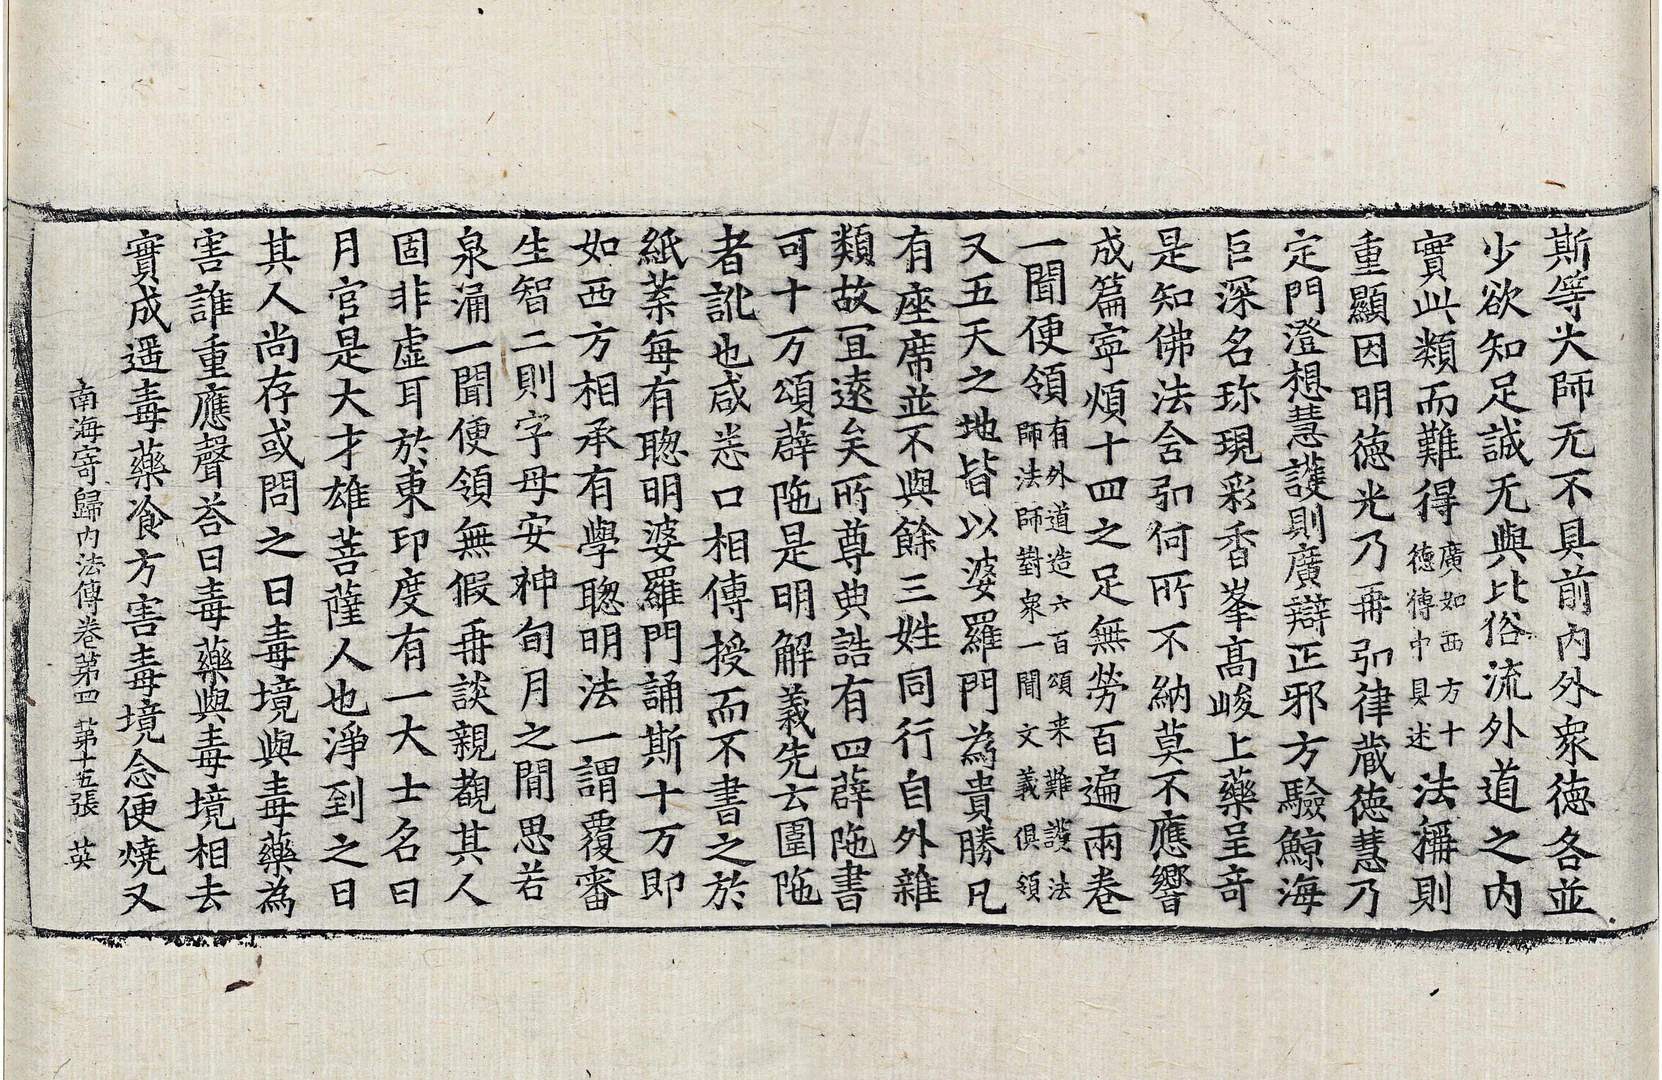 斯等大師无不具前内外衆徳各並
少欲知足誠无與比俗流外道之内
實此類而難得廣如西方十徳傳中具述法稱則
重顯因明德光乃再弘律蔵徳慧乃
定門澄想慧護則廣辯正邪方驗鯨海
巨深名珎現彩香峯髙峻上藥呈竒
是知佛法含弘何所不納莫不應響
成篇寧煩十四之足無勞百遍兩卷
一聞便領有外道造六百頌来難護法師法師對衆一聞文義俱領
又五天之地皆以婆羅門為貴勝凡
有座席並不與餘三姓同行自外雜
類故冝遠矣所尊典誥有四薜陁書
可十万頌薜陁是明解義先云圍陁
者訛也咸悉口相傳授而不書之於
紙葉每有聦明婆羅門誦斯十万即
如西方相承有學聦明法一謂覆審
生智二則字母安神旬月之間思若
泉涌一聞便領無假再談親覩其人
固非虚耳於東印度有一大士名曰
月官是大才雄菩薩人也淨到之日
其人尚存或問之曰毒境與毒藥為
害誰重應聲荅曰毒藥與毒境相去
實成遥毒藥飡方害毒境念便燒又
南海寄歸内法傳卷第四 第十五張 英